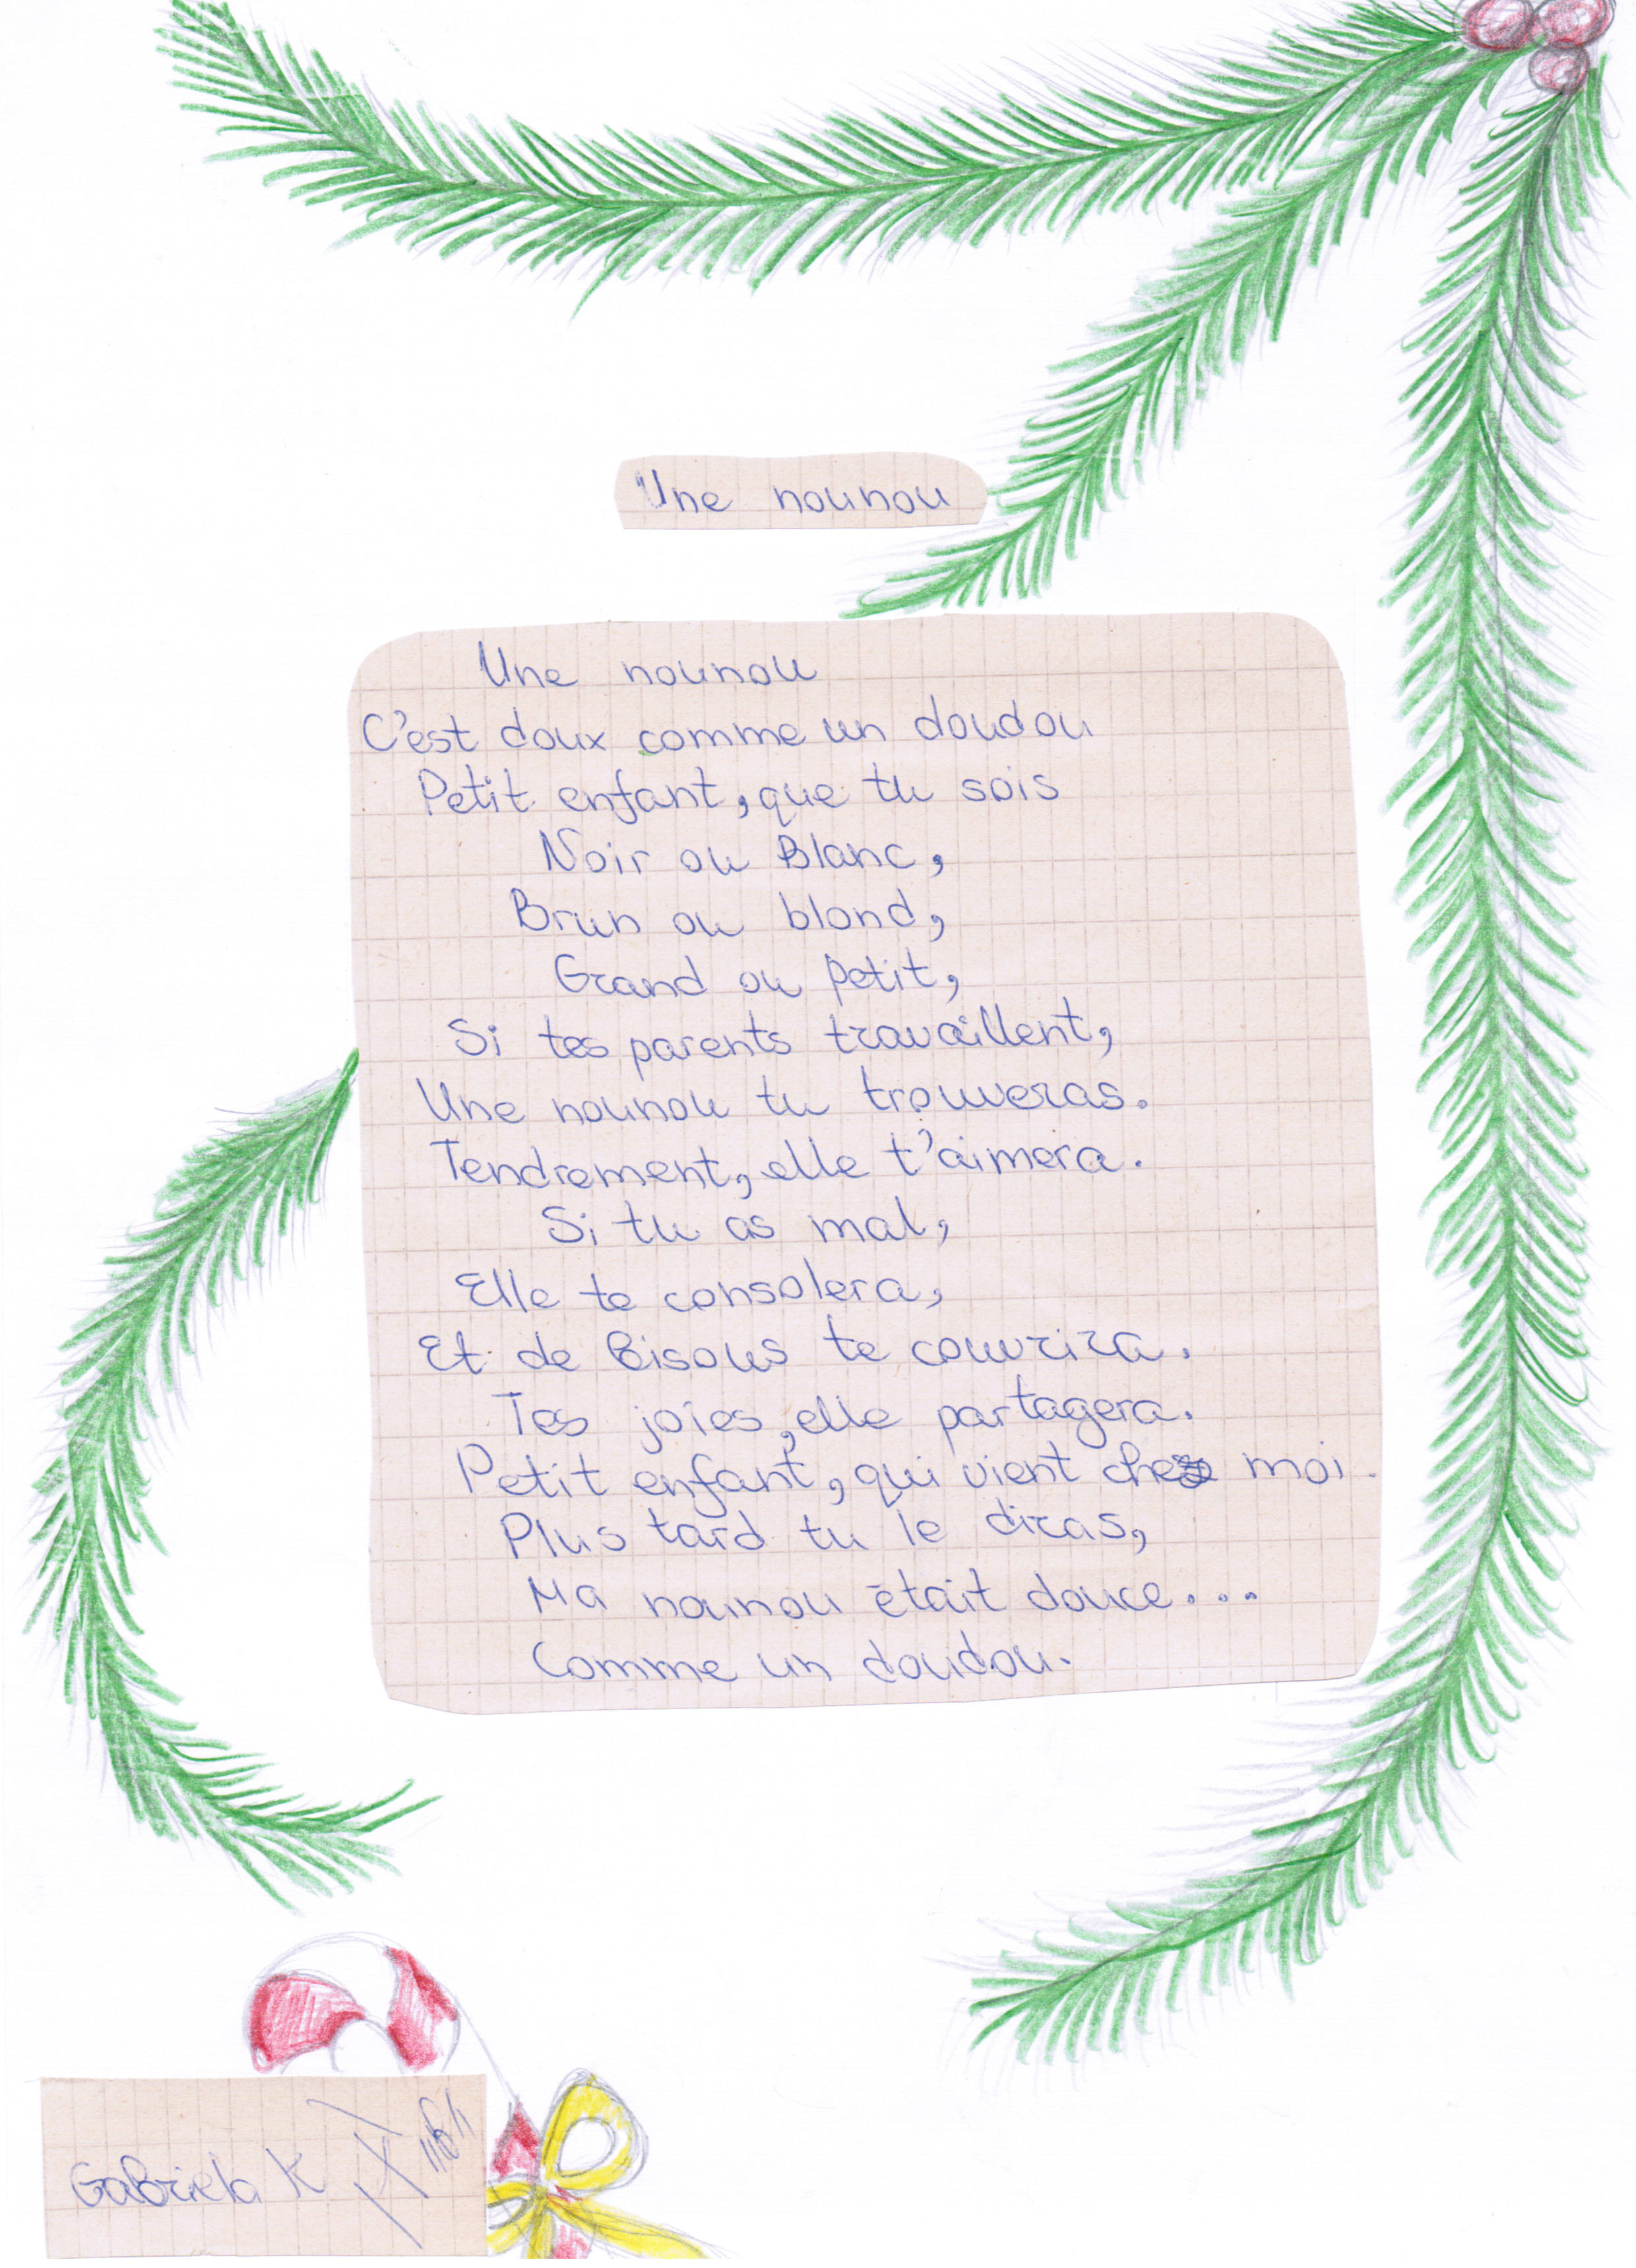 Une nounou
Une nounou
C'est doux comme un doudou
Petit enfant, que tu sois
Noir ou Blanc,
Brun ou blond,
Grand ou Petit,
Si tes parents travaillent,
Une nounou tu trouveras.
Tendrement, elle t'aimera.
Si tu as mal,
Elle te consolera,
Et de Bisous te couvrira.
Tes joies, elle partagera.
Petit enfant, qui vient chez moi.
Plus tard tu le diras,
Ma nounou était douce...
Comme un doudou.
Gabriela K